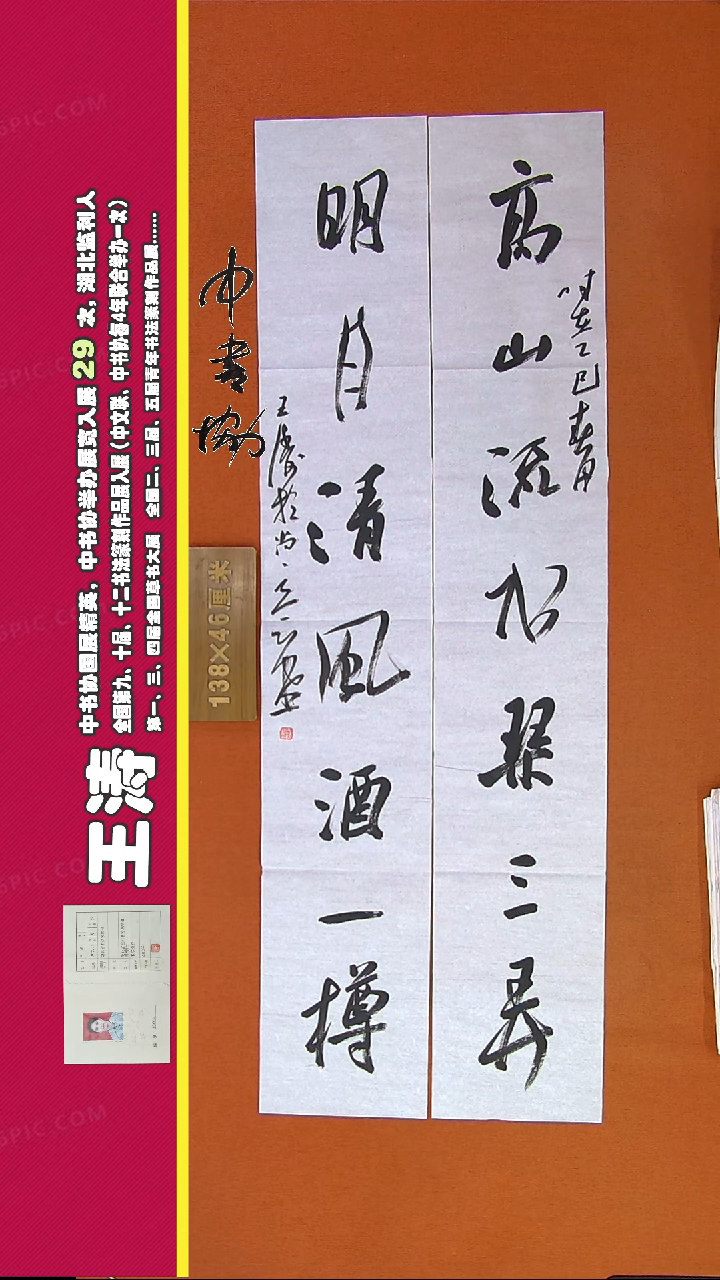 高山流水琴三弄
时在乙巳春月
明月清风酒一樽
王涛于尚
中书协
138×46厘米
王涛
中书协国展精英，中书协举办展览入展29次，湖北监利人
全国第九、十届、十二书法篆刻作品展入展（中文联、中书协每4年联合举办一次）
第一、三、四届全国草书大展 全国二、三届、五届青年书法篆刻作品展……